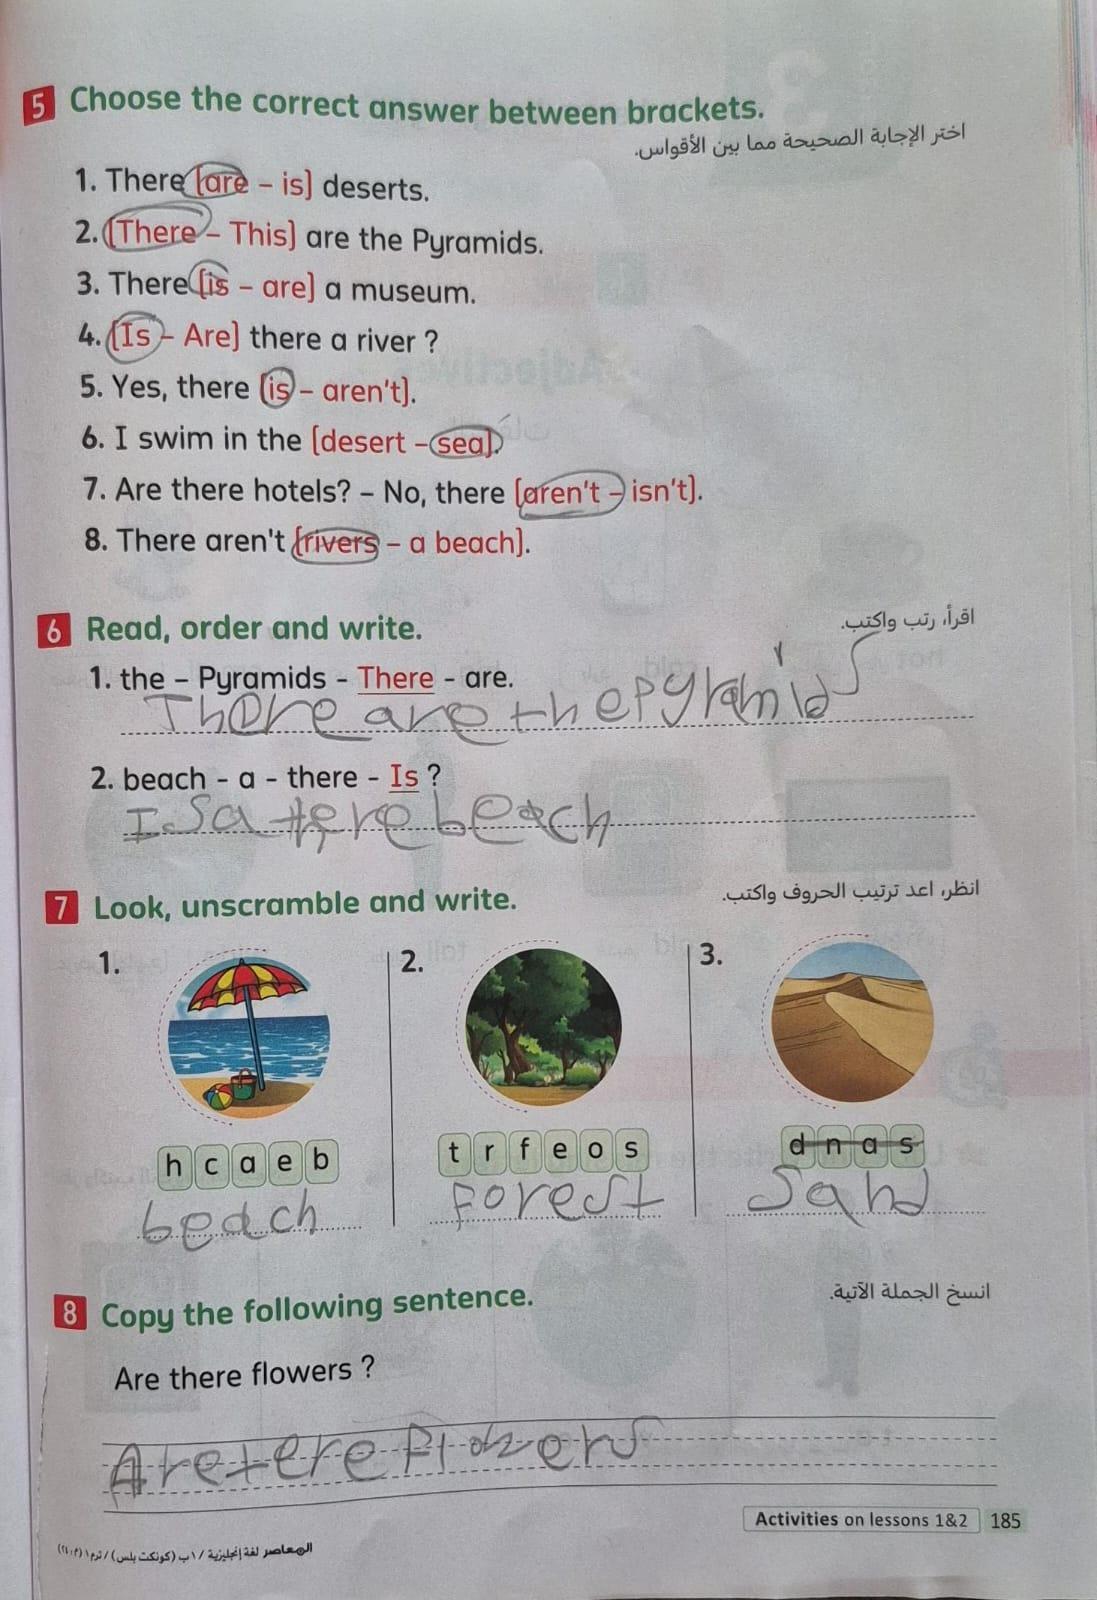 5 Choose the correct answer between brackets.
اختر الإجابة الصحيحة مما بين الأقواس.
1. There (are – is) deserts.
2. (There – This) are the Pyramids.
3. There (is – are) a museum.
4. (Is – Are) there a river ?
5. Yes, there (is – aren't).
6. I swim in the (desert – sea).
7. Are there hotels? – No, there (aren't – isn't).
8. There aren't (rivers – a beach).
6 Read, order and write.
اقرأ، رتب واكتب.
1. the – Pyramids - There - are.
There are the pyramids
2. beach - a - there - Is ?
Is a there beach
7 Look, unscramble and write.
انظر، اعد ترتيب الحروف واكتب.
1. 2. 3.
h c a e b
t r f e o s
d n a s
beach
forest
Sand
8 Copy the following sentence.
انسخ الجملة الآتية.
Are there flowers ?
Are tere flowers
Activities on lessons 1&2 185
المعاصر لغة إنجليزية / ١ ب (كونكت بلس) / ترم ١